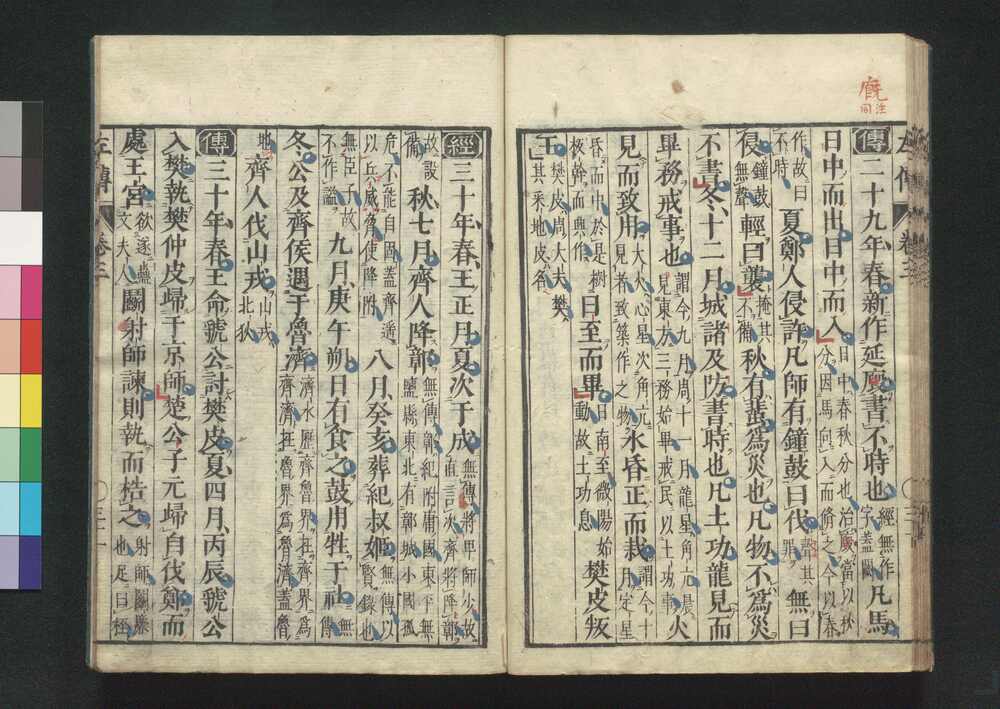 廐
注同
左傳 卷三
傳二十九年春新作延廏書不時也經無作字蓋闕凡馬
日中而出日中而入日中春秋分也治廏當以秋分因馬向入而脩之今以春
作故曰不時夏鄭人侵許凡師有鐘鼓曰伐聲其罪無曰
侵鐘鼓無聲輕曰襲掩其不備秋有蜚為災也凡物不為災
不書冬十二月城諸及防書時也凡土功龍見而
畢務戒事也謂今九月周十一月龍星角亢晨見東方三務始畢戒民以土功事火
見而致用大火心星次角亢見者致築作之物水昏正而栽謂今十月定星
昏而中於是樹板幹而興作日至而畢日南至微陽始動故土功息樊皮叛
王樊皮周大夫樊其采地皮名
經三十年春王正月夏次于成無傳將卑師少故直言次齊將降鄣
故設備秋七月齊人降鄣無傳鄣紀附庸國東平無鹽縣東北有鄣城小國孤
危不能自固蓋齊遙以兵威脅使降附八月癸亥葬紀叔姬無傳以賢錄也
無臣子故不作謚九月庚午朔日有食之鼓用牲于社無傳
冬公及齊侯遇于魯濟濟水歷齊魯界在齊界為齊濟在魯界為魯濟蓋魯
地齊人伐山戎山戎北狄
傳三十年春王命虢公討樊皮夏四月丙辰虢公
入樊執樊仲皮歸于京師楚公子元歸自伐鄭而
處王宮欲遂蠱文夫人鬬射師諫則執而梏之射師鬬廉也足曰桎
左傳 卷三